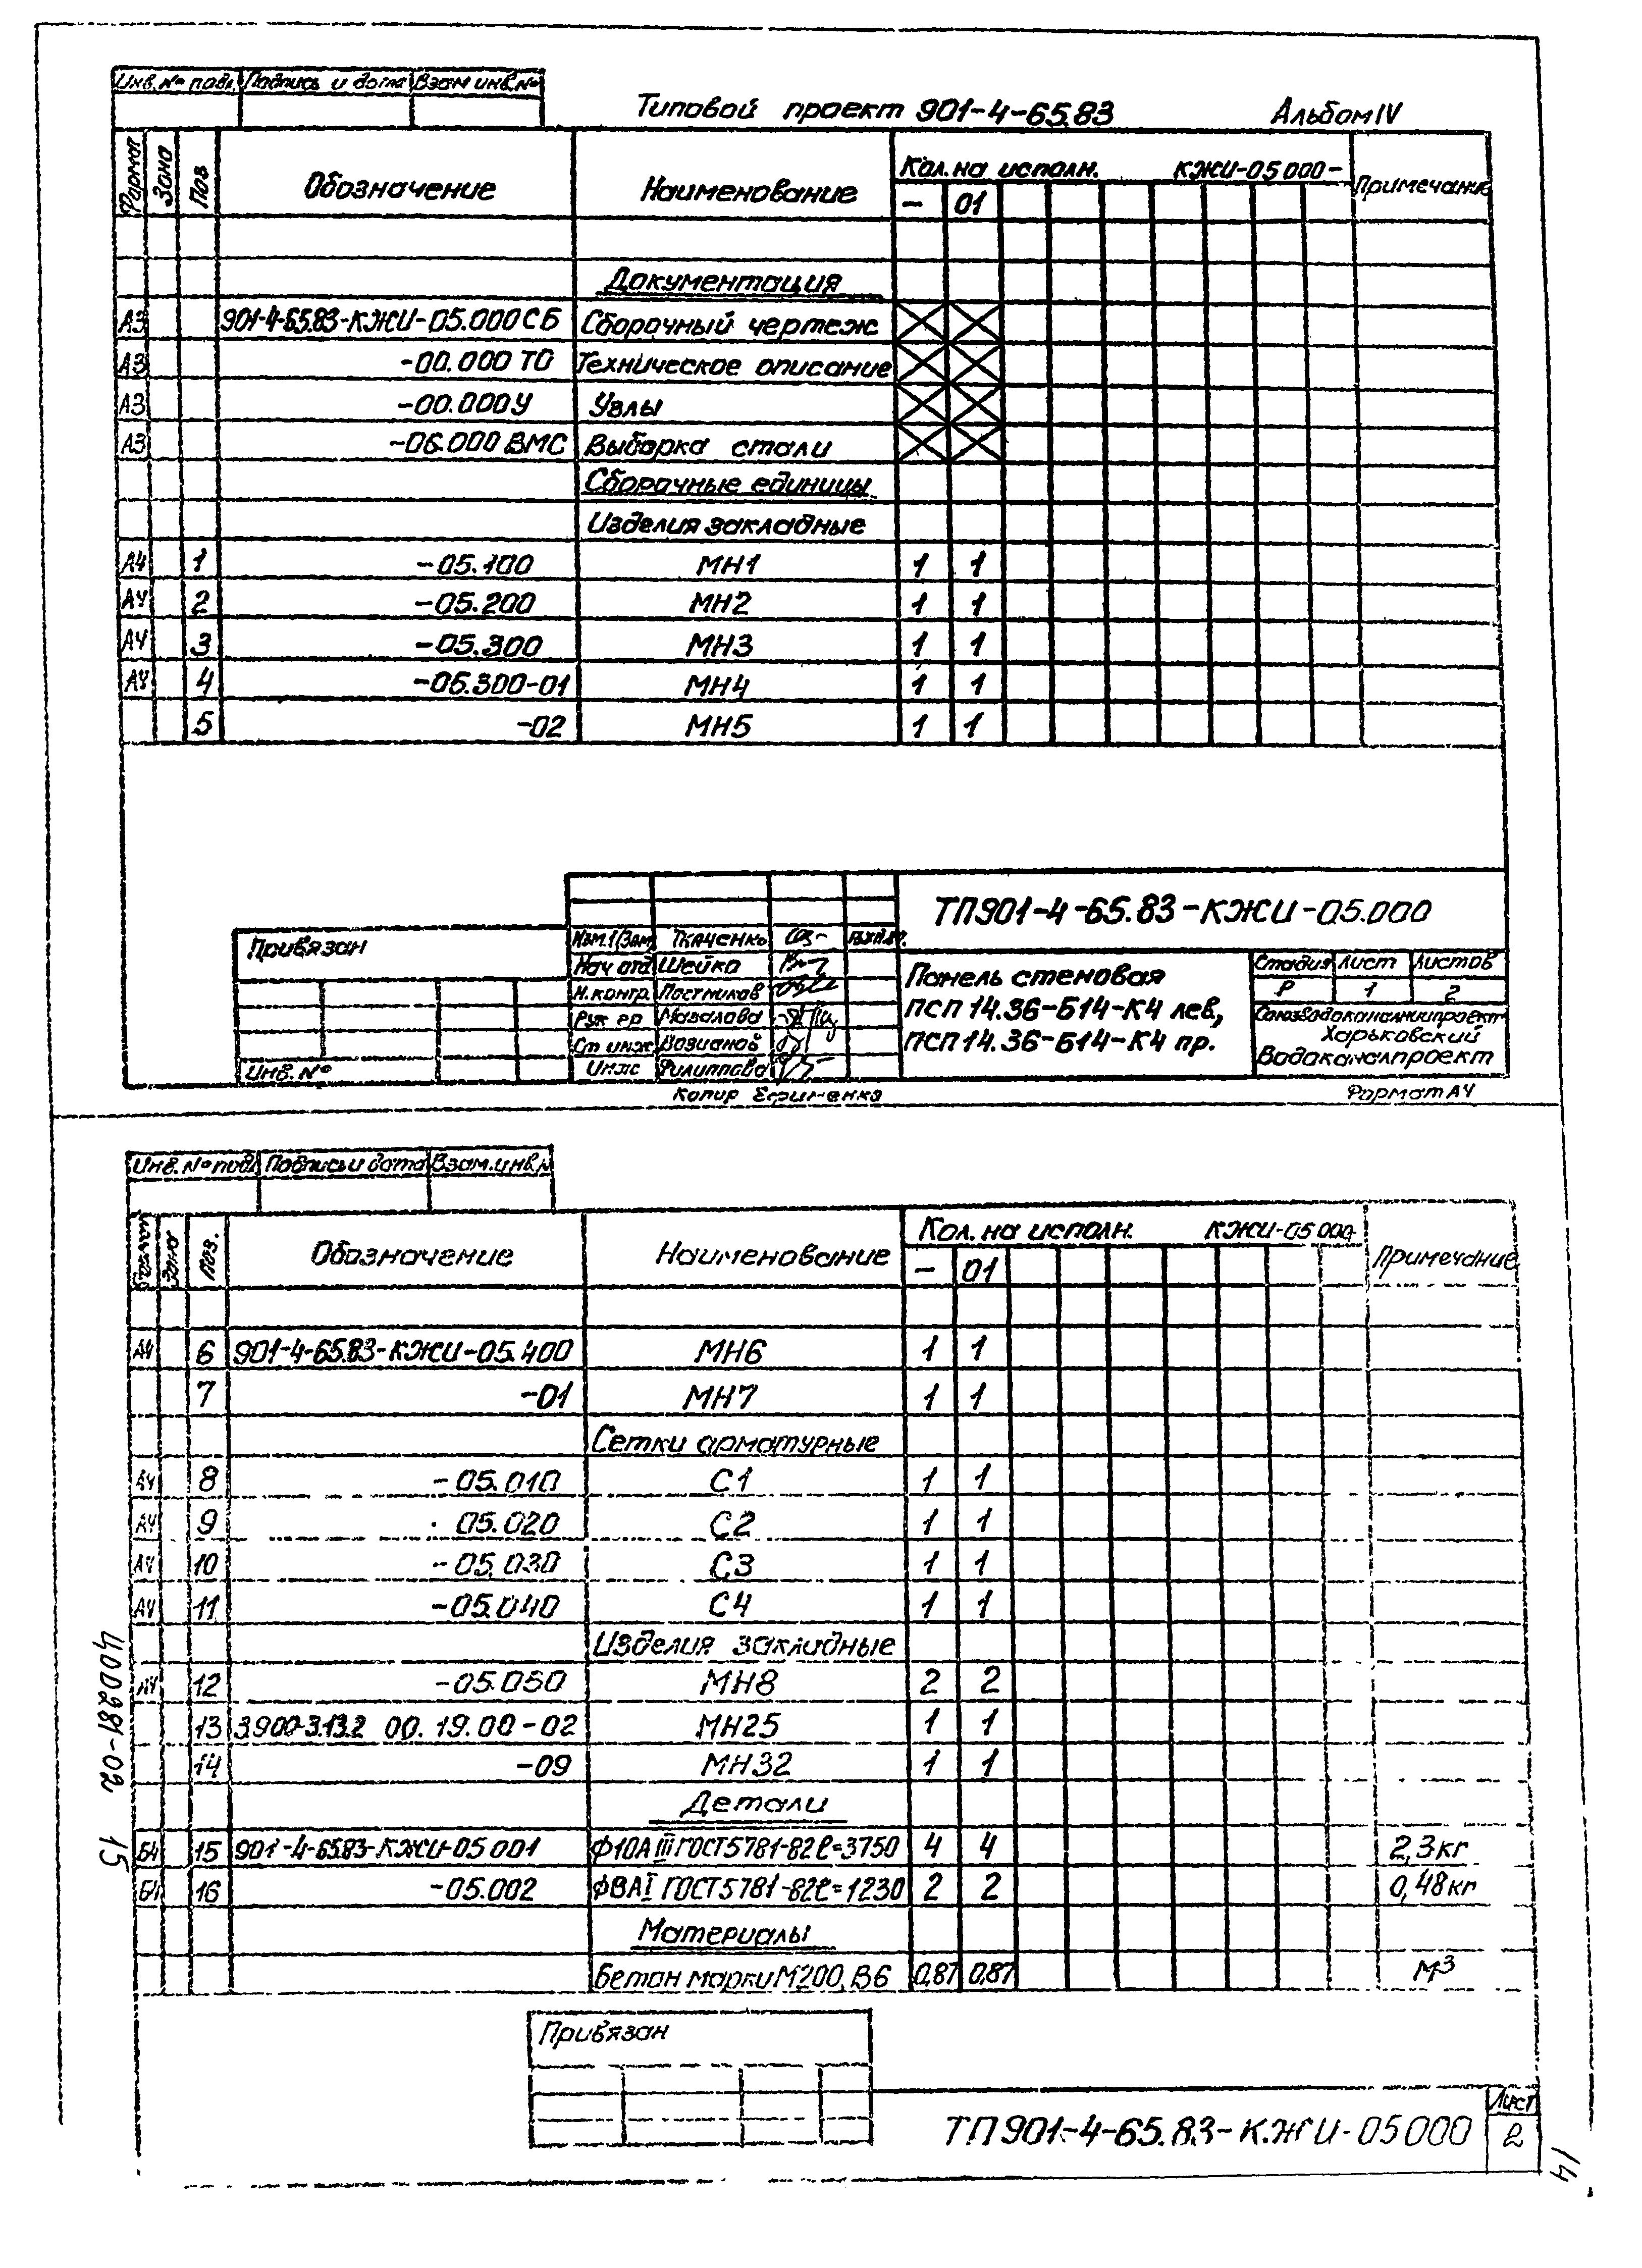 Инв. № подл. Подпись и дата Взам инв. №
Типовой проект 901-4-65.83 Альбом IV
Формат Зона Поз Обозначение Наименование Кол. на исполн. КЖИ-05 000- Примечание
— 01
Документация
А3 901-4-65.83-КЖИ-05.000 СБ Сборочный чертеж
А3 -00.000 ТО Техническое описание
А3 -00.000 У Узлы
А3 -06.000 ВМС Выборка стали
Сборочные единицы
Изделия закладные
А4 1 -05.100 МН1 1 1
А4 2 -05.200 МН2 1 1
А4 3 -05.300 МН3 1 1
А4 4 -05.300-01 МН4 1 1
5 -02 МН5 1 1
ТП901-4-65.83-КЖИ-05.000
Привязан
Изм.1(Зам) Ткаченко
Нач отд Шейко
Н.контр. Постников
Рук гр Мазалова
Ст инж Возианов
Инж Филиппова
Инв. №
Панель стеновая
ПСП 14.36-Б14-К4 лев,
ПСП 14.36-Б14-К4 пр.
Стадия Лист Листов
Р 1 2
Союзводоканалниипроект
Харьковский
Водоканалпроект
Копир Ефименко Формат А4
Инв. № подл Подпись и дата Взам. инв. №
Формат Зона Поз. Обозначение Наименование Кол. на исполн. КЖИ-05 000- Примечание
— 01
А4 6 901-4-65.83-КЖИ-05.400 МН6 1 1
7 -01 МН7 1 1
Сетки арматурные
А4 8 -05.010 С1 1 1
А4 9 05.020 С2 1 1
А4 10 -05.030 С3 1 1
А4 11 -05.040 С4 1 1
Изделия закладные
А4 12 -05.050 МН8 2 2
13 3.900-3.13.2 00.19.00-02 МН25 1 1
14 -09 МН32 1 1
Детали
Б4 15 901-4-65.83-КЖИ-05 001 Ф10АIII ГОСТ5781-82 ℓ=3750 4 4 2,3кг
Б4 16 -05.002 Ф8АI ГОСТ5781-82 ℓ=1230 2 2 0,48кг
Материалы
Бетон марки М200, В6 0,87 0,87 м3
Привязан
ТП901-4-65.83-КЖИ-05000
Лист
2
400281-02 15
14